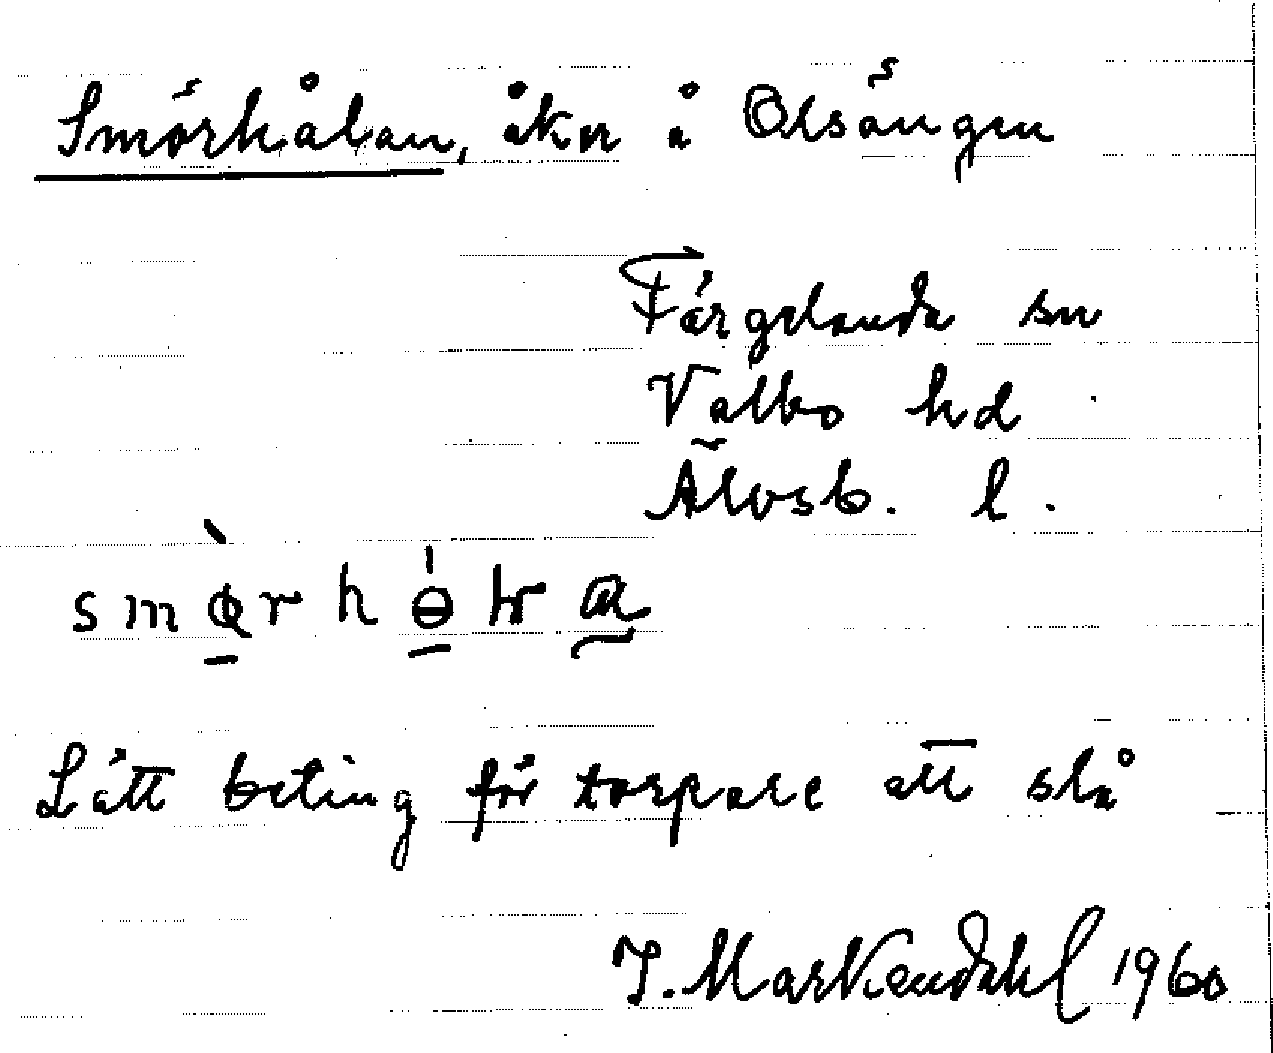 Smörhålan, åker å Olsängen
Färgelanda sn
Valbo hd
Älvsb. l.
Lätt beting för torpare att slå
J. Markendahl 1960